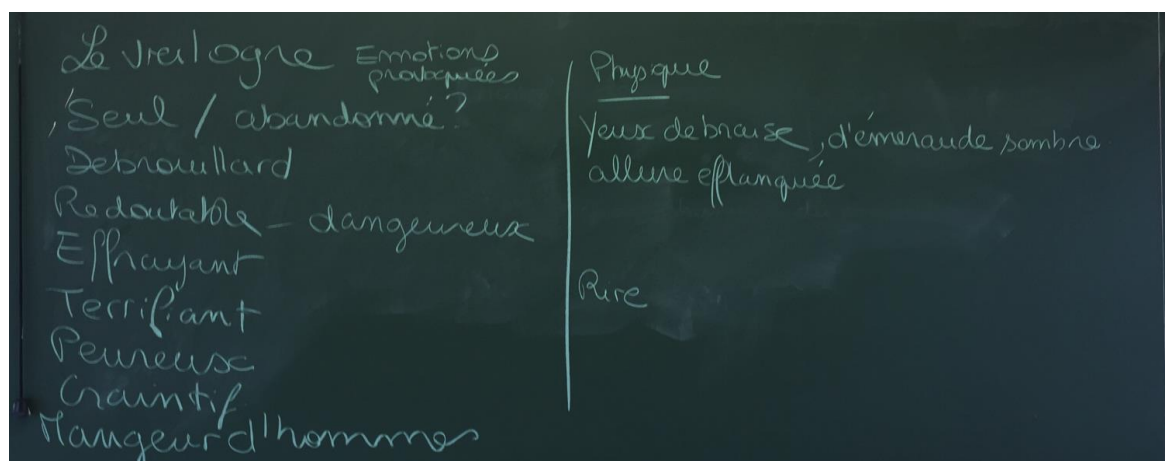 Le vrai ogre Emotions
provoquées
Seul / abandonné?
Debrouillard
Redoutable - dangeureux
Effrayant
Terrifiant
Peureux
Craintif
Mangeur d'hommes
Physique
Yeux de braise, d'émeraude sombre
allure efflanquée
Rire